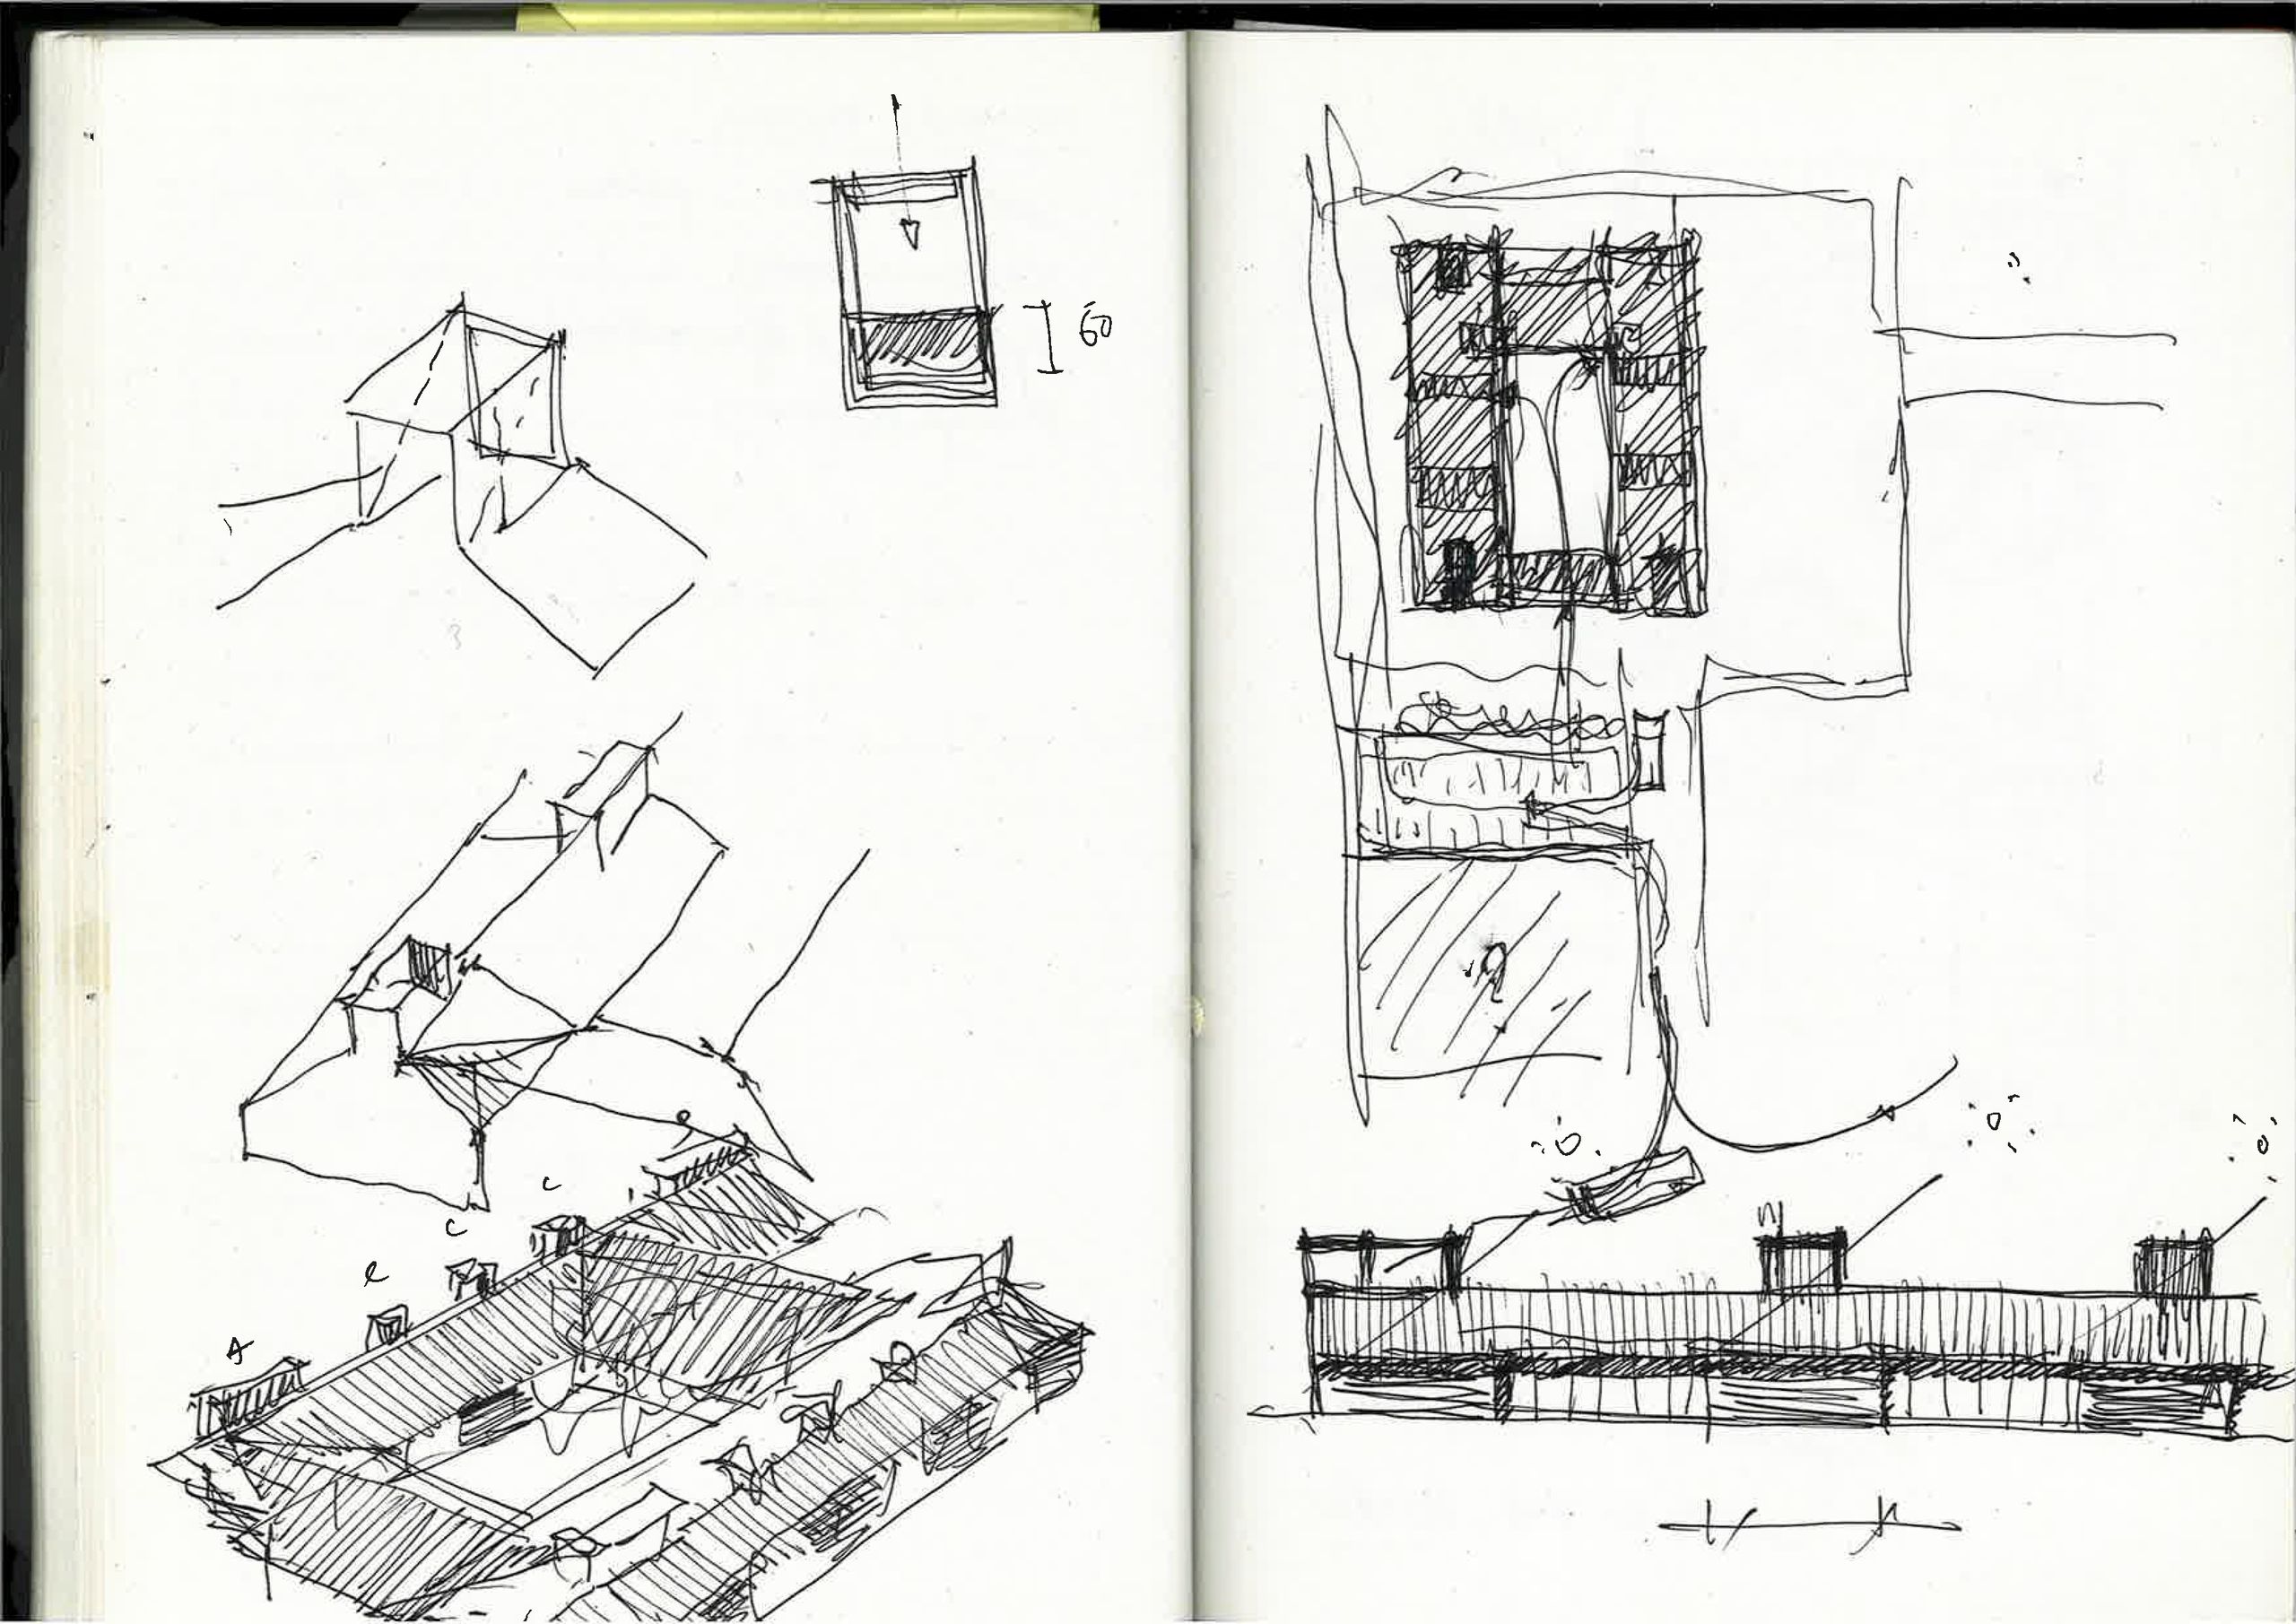 60
c
c
e
A